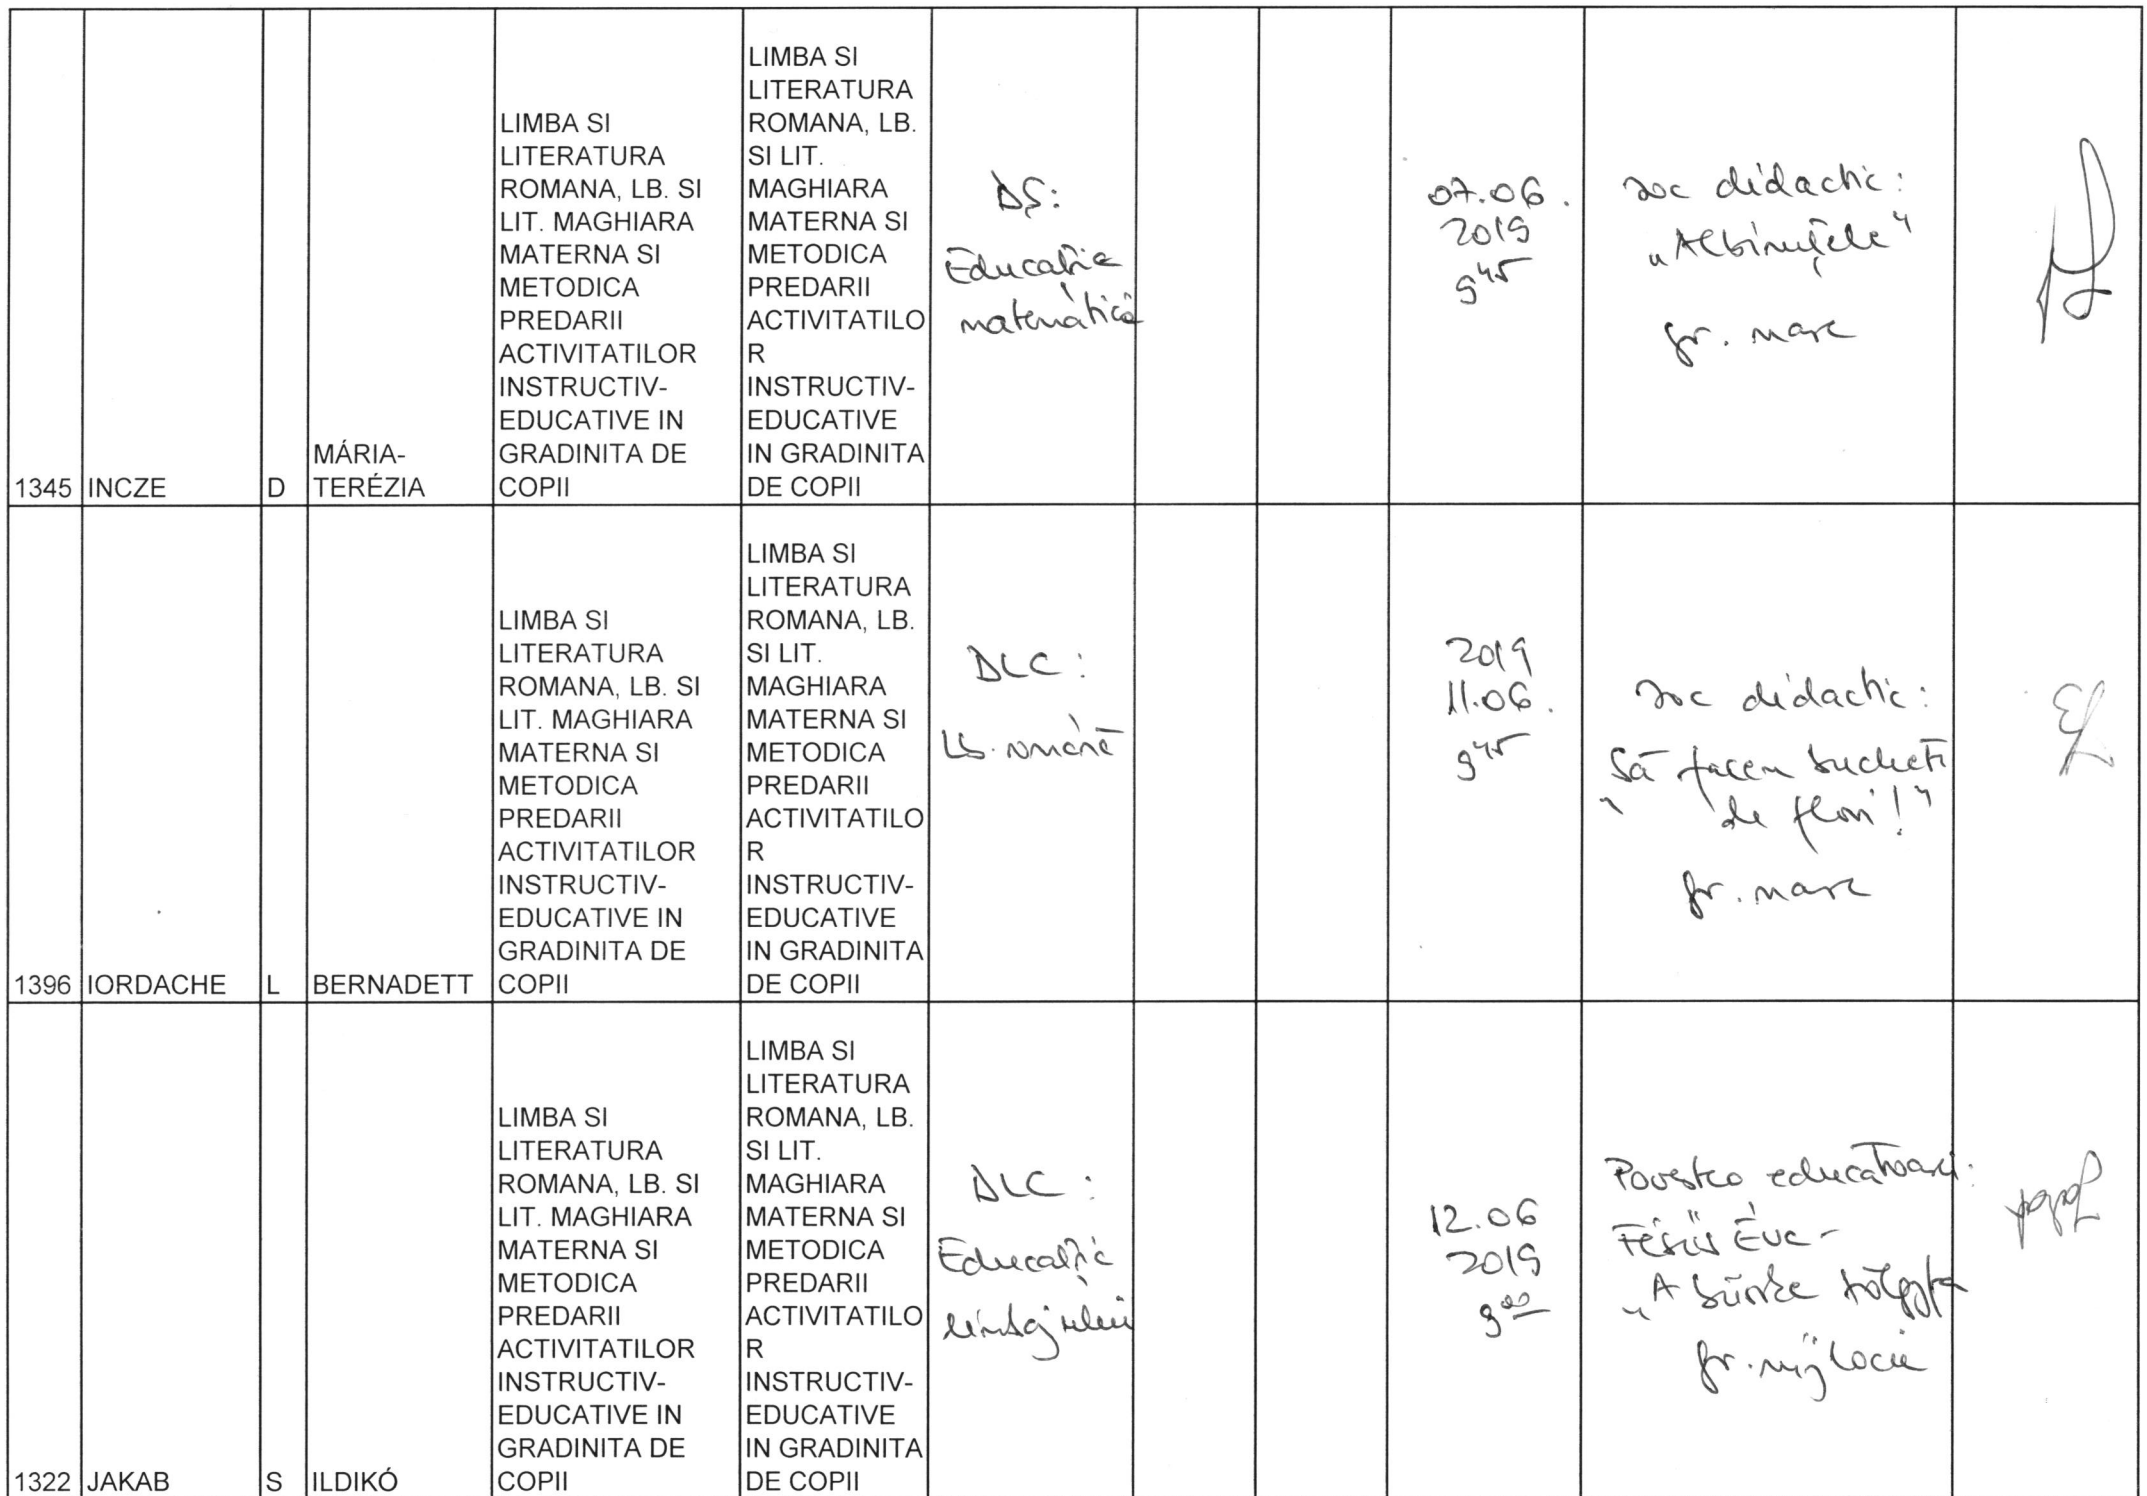 LIMBA SI
LITERATURA
ROMANA, LB. SI
LIT. MAGHIARA
MATERNA SI
METODICA
PREDARII
ACTIVITATILOR
INSTRUCTIV-
EDUCATIVE IN
GRADINITA DE
COPII
LIMBA SI
LITERATURA
ROMANA, LB.
SI LIT.
MAGHIARA
MATERNA SI
METODICA
PREDARII
ACTIVITATILO
R
INSTRUCTIV-
EDUCATIVE
IN GRADINITA
DE COPII
1345 INCZE D MÁRIA-
TERÉZIA
DȘ:
Educație
matematică
07.06.
2019
9 45
Joc didactic:
„Albinuțele"
gr. mare
LIMBA SI
LITERATURA
ROMANA, LB. SI
LIT. MAGHIARA
MATERNA SI
METODICA
PREDARII
ACTIVITATILOR
INSTRUCTIV-
EDUCATIVE IN
GRADINITA DE
COPII
LIMBA SI
LITERATURA
ROMANA, LB.
SI LIT.
MAGHIARA
MATERNA SI
METODICA
PREDARII
ACTIVITATILO
R
INSTRUCTIV-
EDUCATIVE
IN GRADINITA
DE COPII
1396 IORDACHE L BERNADETT
DLC:
Lb. română
2019
11.06.
9 45
Joc didactic:
„Să facem buchete
de flori!"
gr. mare
LIMBA SI
LITERATURA
ROMANA, LB. SI
LIT. MAGHIARA
MATERNA SI
METODICA
PREDARII
ACTIVITATILOR
INSTRUCTIV-
EDUCATIVE IN
GRADINITA DE
COPII
LIMBA SI
LITERATURA
ROMANA, LB.
SI LIT.
MAGHIARA
MATERNA SI
METODICA
PREDARII
ACTIVITATILO
R
INSTRUCTIV-
EDUCATIVE
IN GRADINITA
DE COPII
1322 JAKAB S ILDIKÓ
DLC:
Educație
limbajului
12.06
2019
9 00
Povestea educatoarei:
Fésűs Éva -
„A büszke tölgyfa
gr. mijlocie